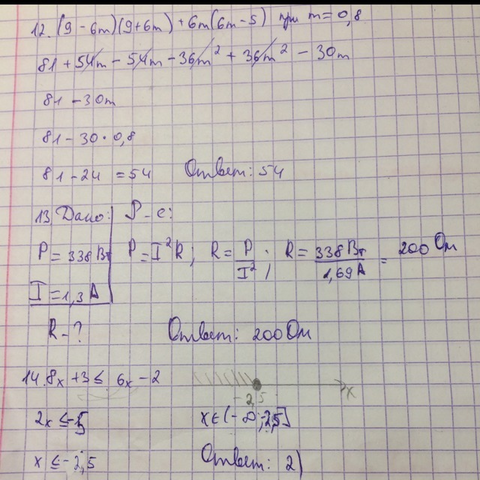 12. (9 - 6m)(9 + 6m) + 6m(6m - 5) при m = 0,8
81 + 54m - 54m - 36m² + 36m² - 30m
81 - 30m
81 - 30 · 0,8
81 - 24 = 54 Ответ: 54
13 Дано: Р-е:
P = 338 Вт P = I²R; R = P/I²; R = 338 Вт/1,69 А = 200 Ом
I = 1,3 А
R - ? Ответ: 200 Ом
14. 8x + 3 ≤ 6x - 2
-2,5 x
2x ≤ -5 x ∈ (-∞; -2,5]
x ≤ -2,5 Ответ: 2)